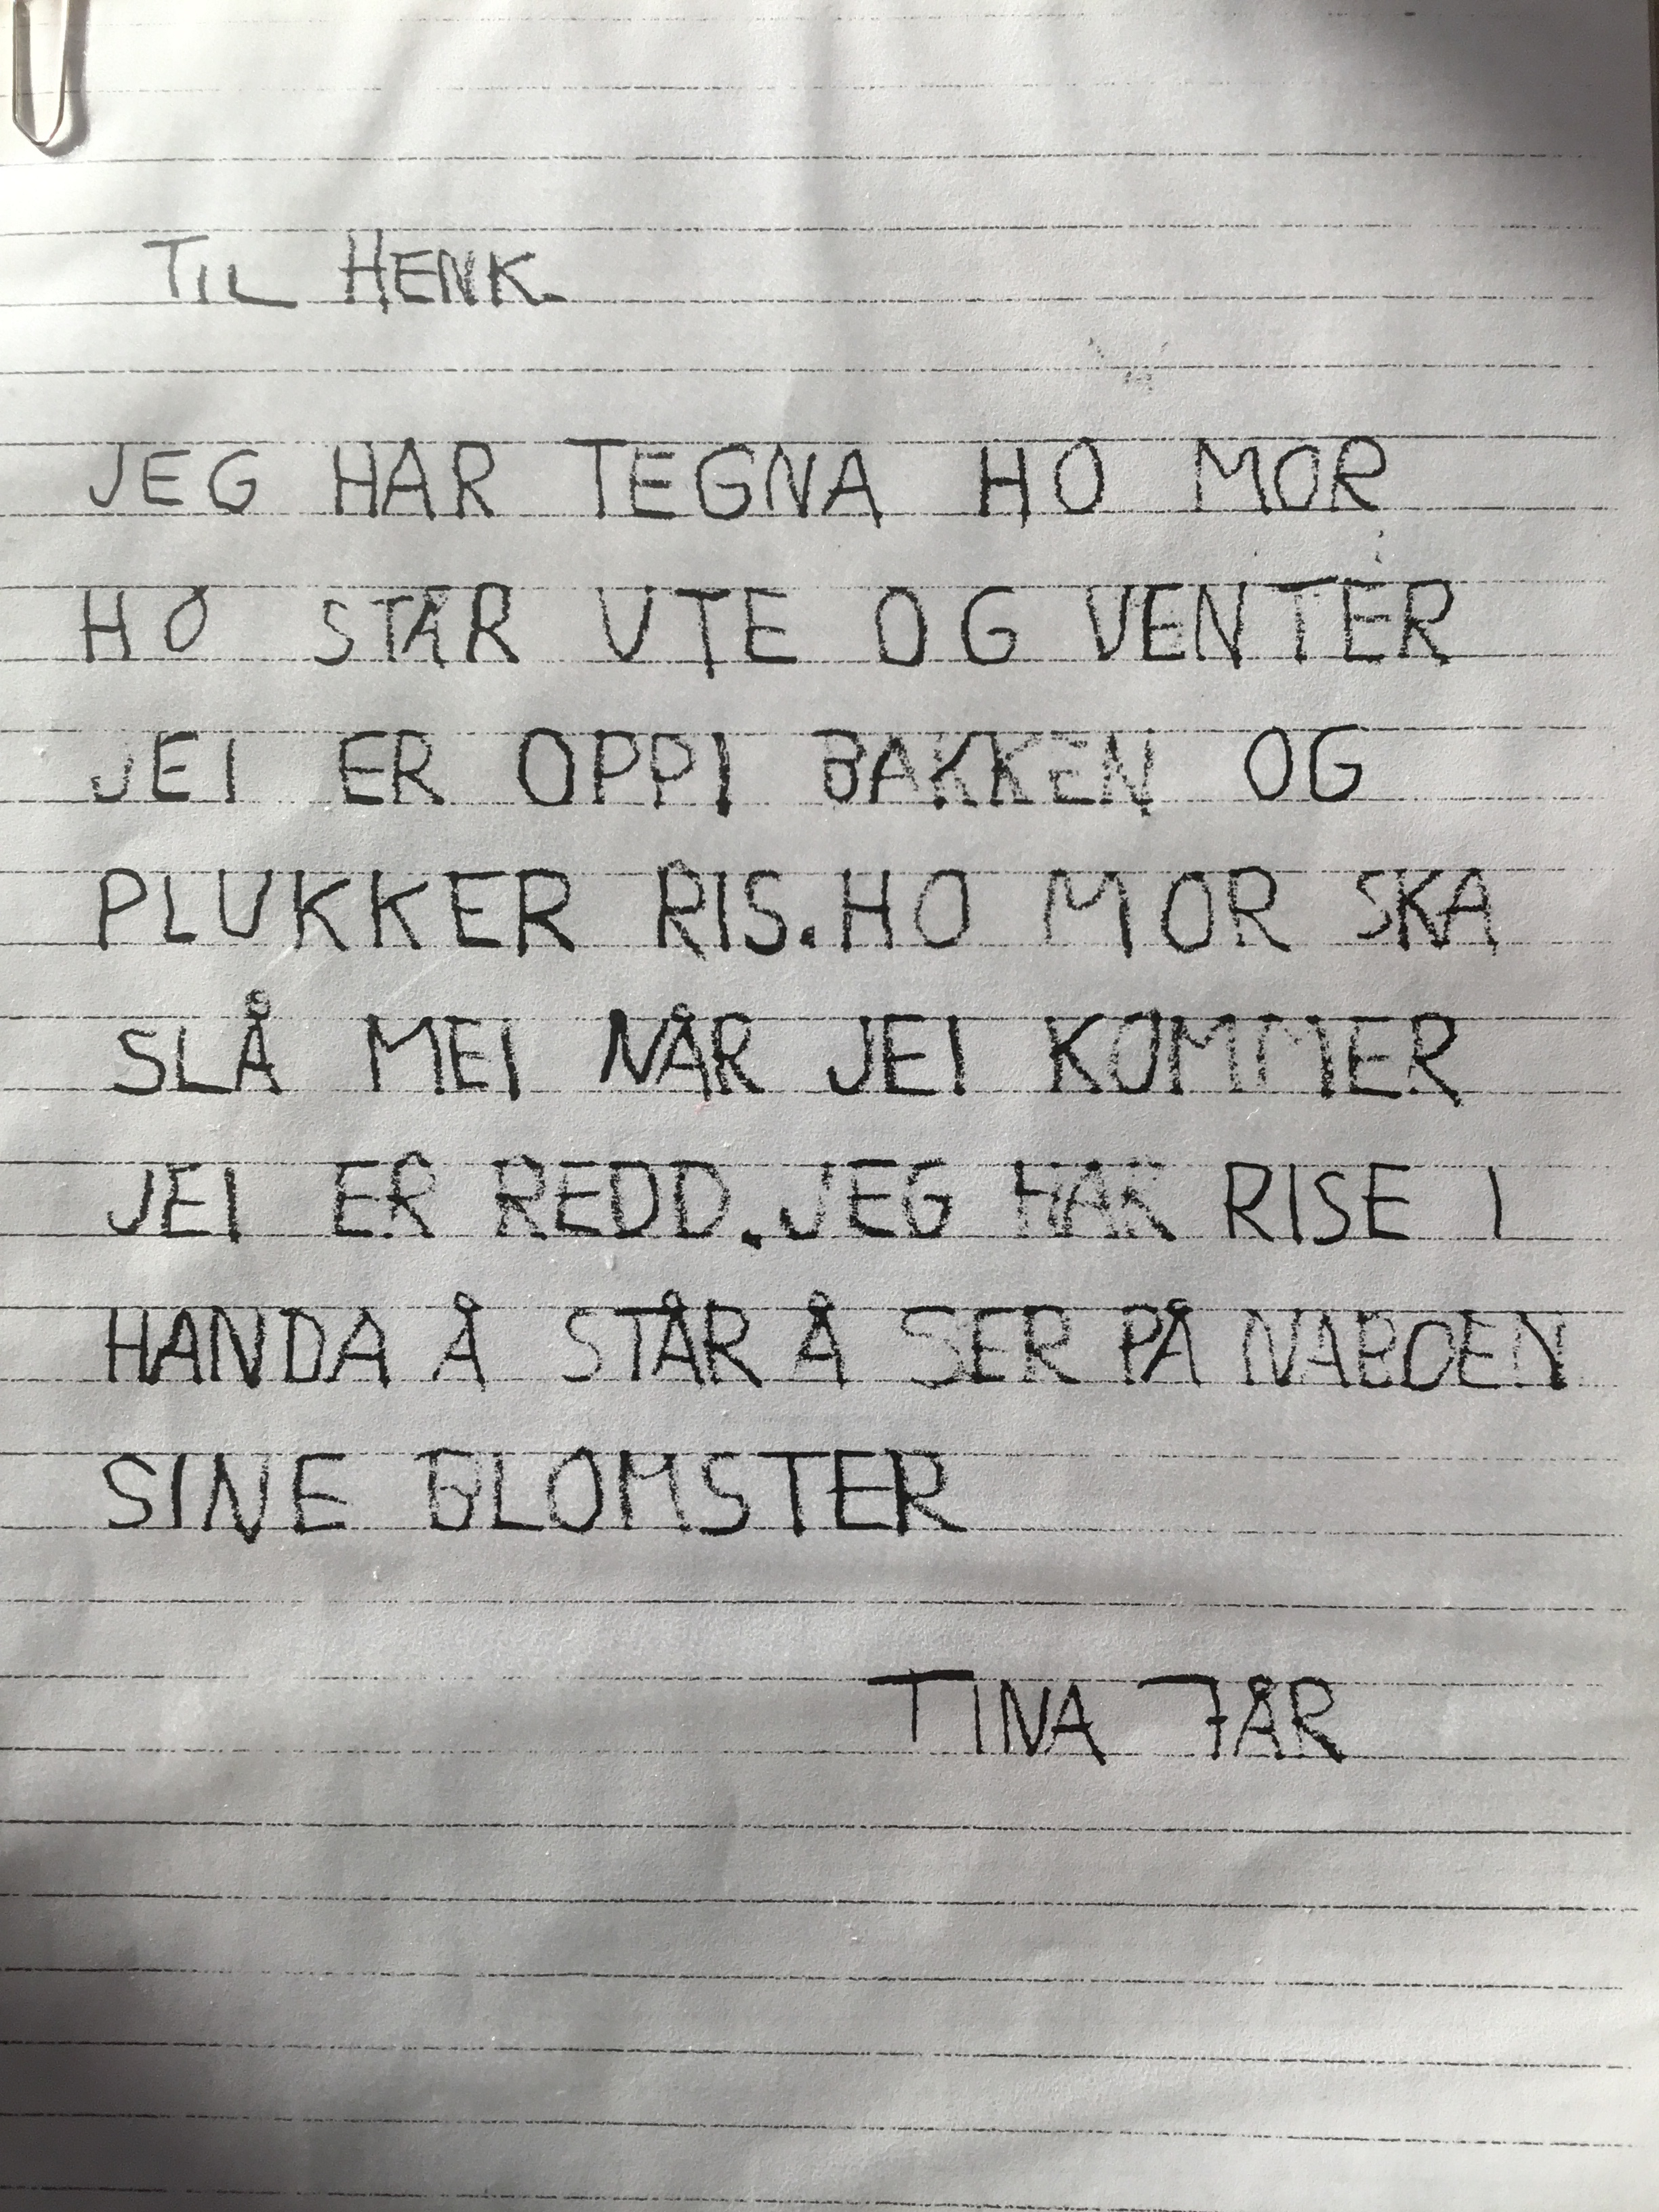 TIL HENK.
JEG HAR TEGNA HO MOR
HO STÅR UTE OG VENTER
JEI ER OPPI BAKKEN OG
PLUKKER RIS. HO MOR SKA
SLÅ MEI NÅR JEI KOMMER
JEI ER REDD. JEG HAR RISE I
HANDA Å STÅR Å SER PÅ NABOEN
SINE BLOMSTER
TINA 7 ÅR